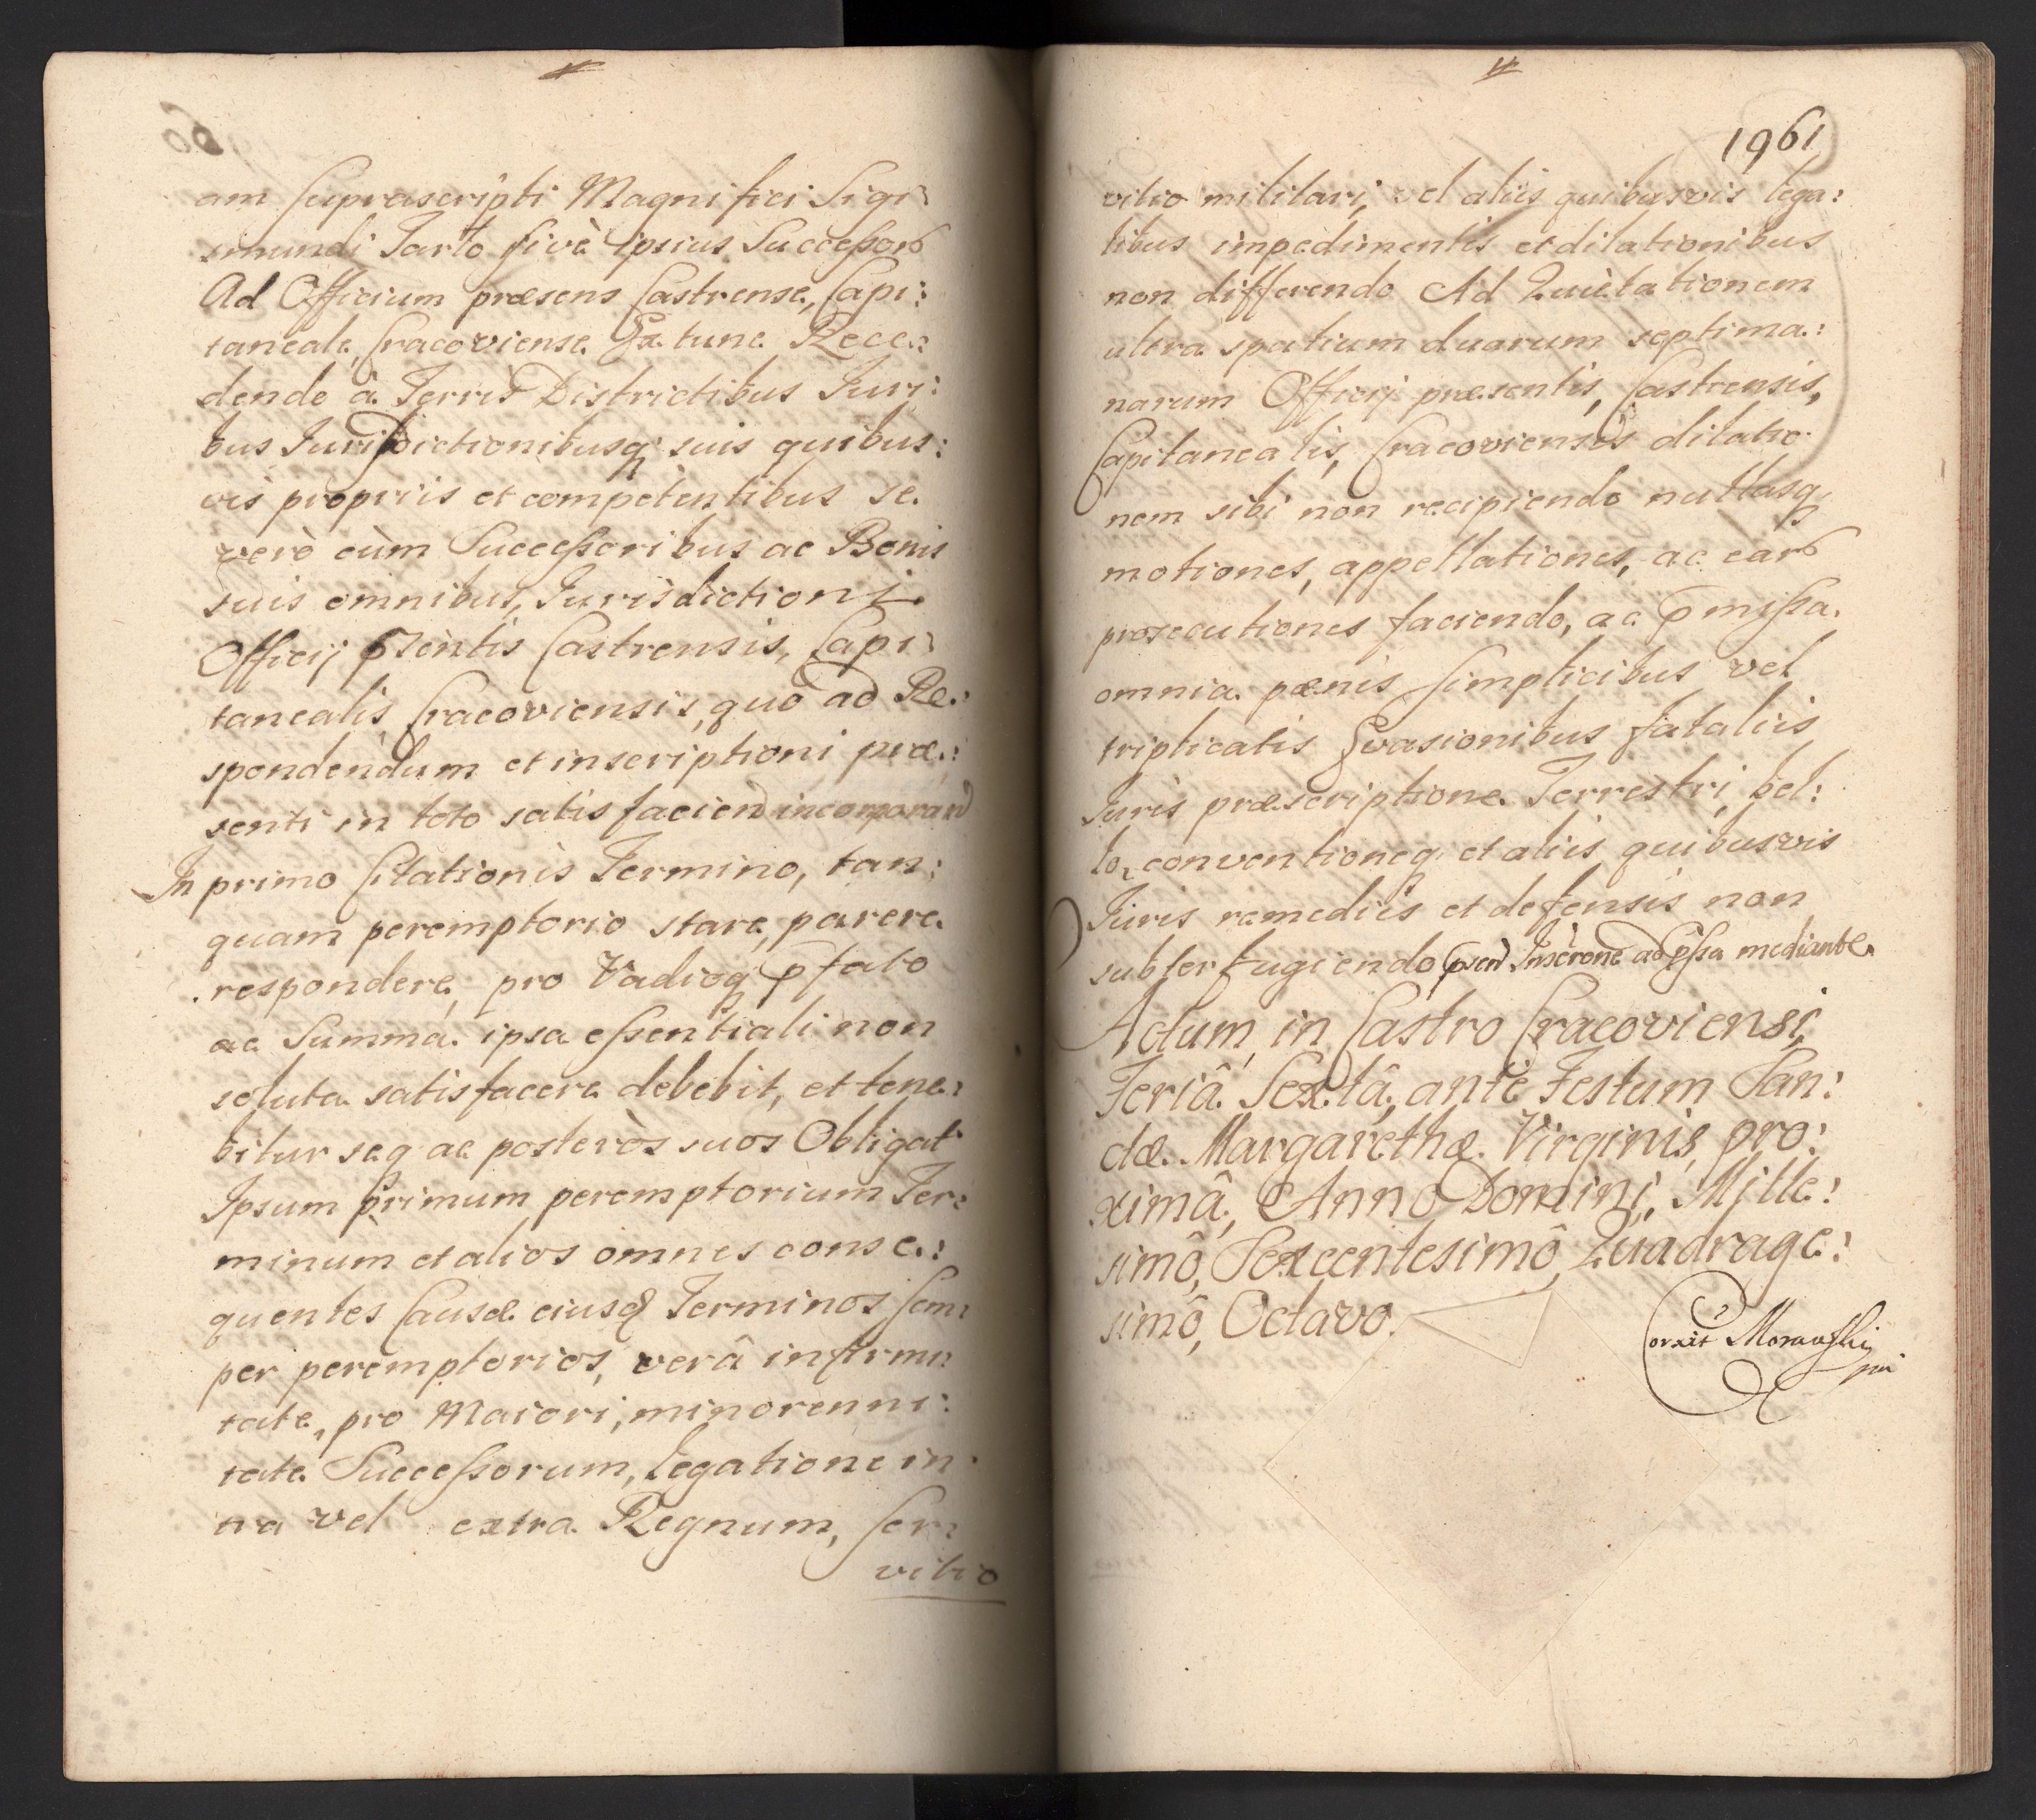 am suprascripti Magnifici Sigi:
smundi Tarło sivè ipsius Successorū
Ad Officium præsens Castrense, Capi:
taneale, Cracoviense Ex tunc Rece:
dendo à Terris Districtibus Juri:
bus Jurisdictionibusq suis quibus:
vis propriis et competentibus se
verò cùm Successoribus ac Bonis
suis omnibus, Jurisdictioni
Officij pzentis Castrensis, Capi:
tanealis Cracoviensis, quò ad Re:
spondendum et inscriptioni præ:
senti in toto satisfaciend incorporand
In primo Citationis Termino, tan:
quam peremptorio stare, parere
respondere, pro Vadioq pfato
ac Summa ipsa essentiali non
soluta satisfacere debebit, et tene:
bitur seq ac posteròs suos Obligat
Ipsum primum peremptorium Ter:
minum et alios omnes conse:
quentes Causæ eiusd Terminos sem:
per peremptorios, verâ infirmi:
tate, pro Maiori, minorenni:
tate Successorum, legatione in:
tra vel extra Regnum, ser:
vitio
1961
vitio militari, vel aliis quibusvis lega:
libus impedimentis et dilationibus
non differendo Ad Quietationem
ultra spatium duarum septima:
narum Officij præsentis, Castrensis,
Capitanealis, Cracoviensis dilatio:
nem sibi non recipiendo nullasq
motiones, appellationes, ac earū
prosecutiones faciendo, ac pmissa
omnia pænis simplicibus vel
triplicatis Evasionibus fataliis
Juris præscriptione Terrestri, bel:
lo, conventioneq et aliis quibusvis
Juris remediis et defensis non
subterfugiendo psen Inscrone ad pssa mediante
Actum in Castro Cracoviensi
Feriâ Sextâ, ante Festum San:
ctæ Margarethæ Virginis, pro:
ximâ, Anno Domini, Mille:
simô, Sexcentesimô, Quadrage:
simô, Octavo.
Corxit Morawski
mp